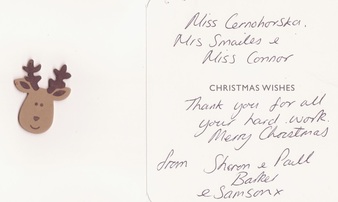 Miss Cernohorska.
Mrs Smailes e
Miss Connor
CHRISTMAS WISHES
Thank you for all
your hard work.
Merry Christmas
from Sharon e Paul
Barker
e Samson x